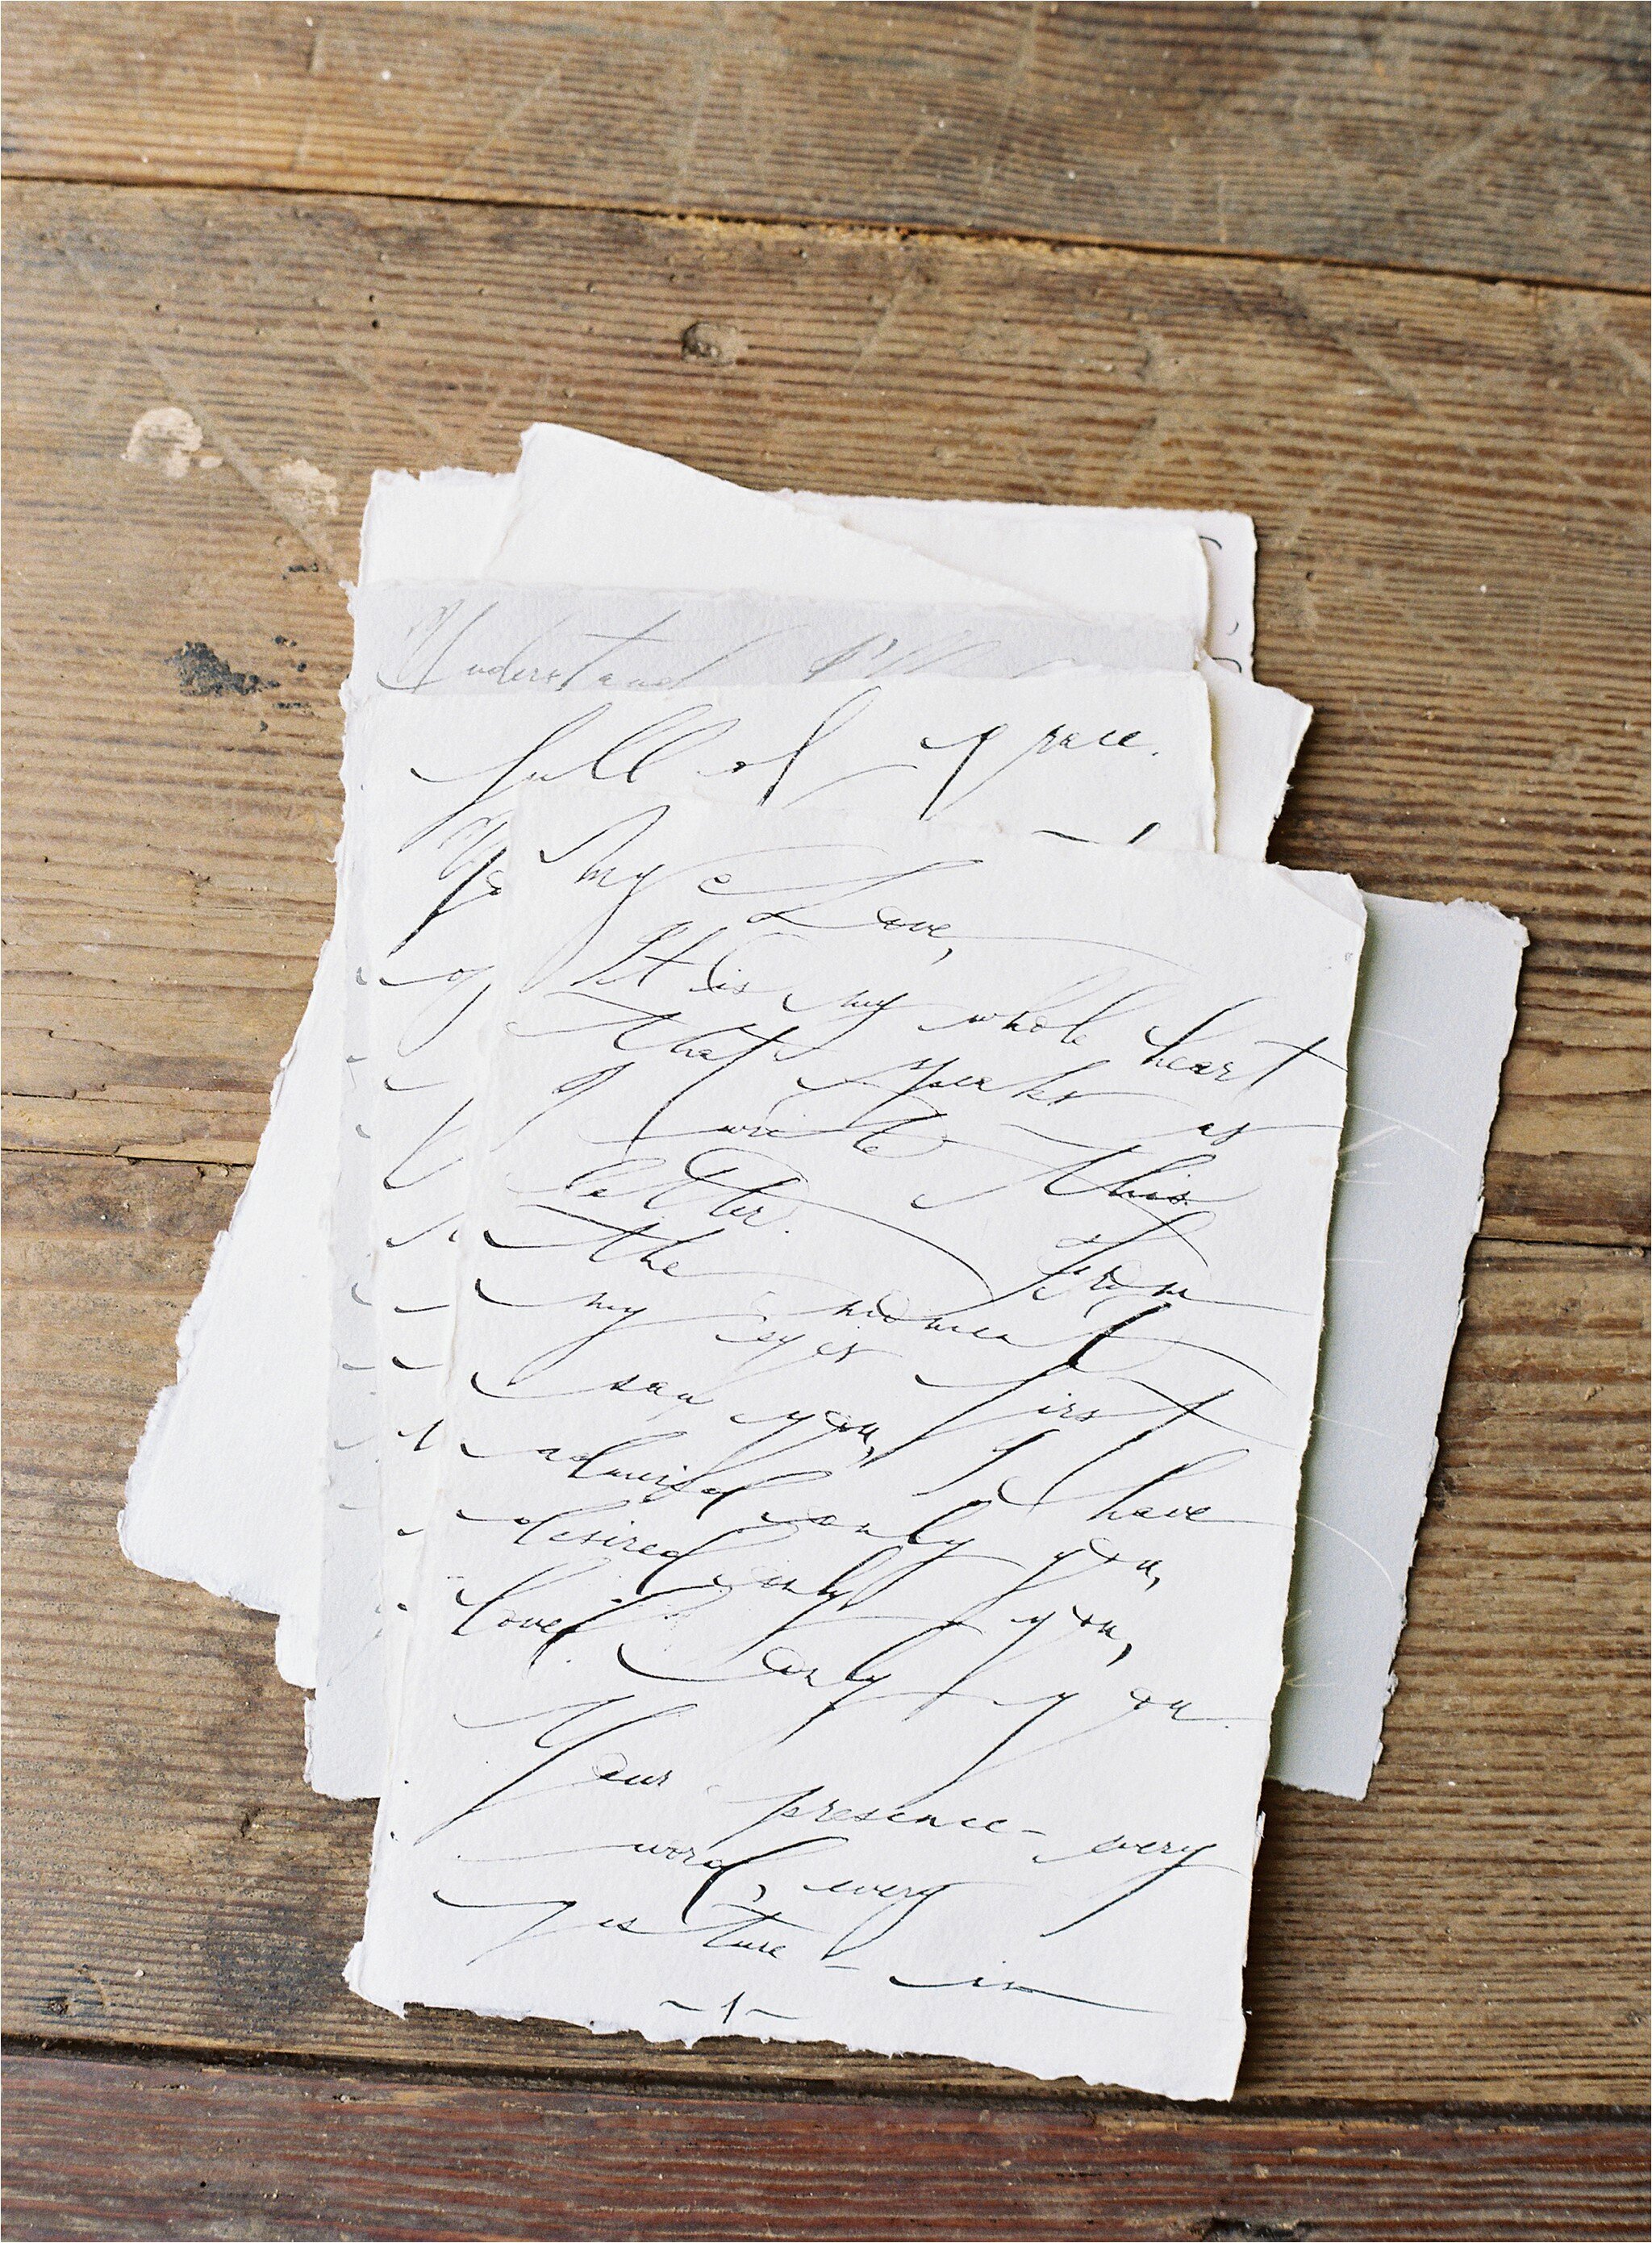 Understand I'll
full of grace.
My Love,
It is my whole heart
that speaks as
I write this
letter. From
the moment
my eyes first
saw you, I have
admired only you,
desired only you,
loved only you.
Your presence- every
word, every
gesture - in
~1~